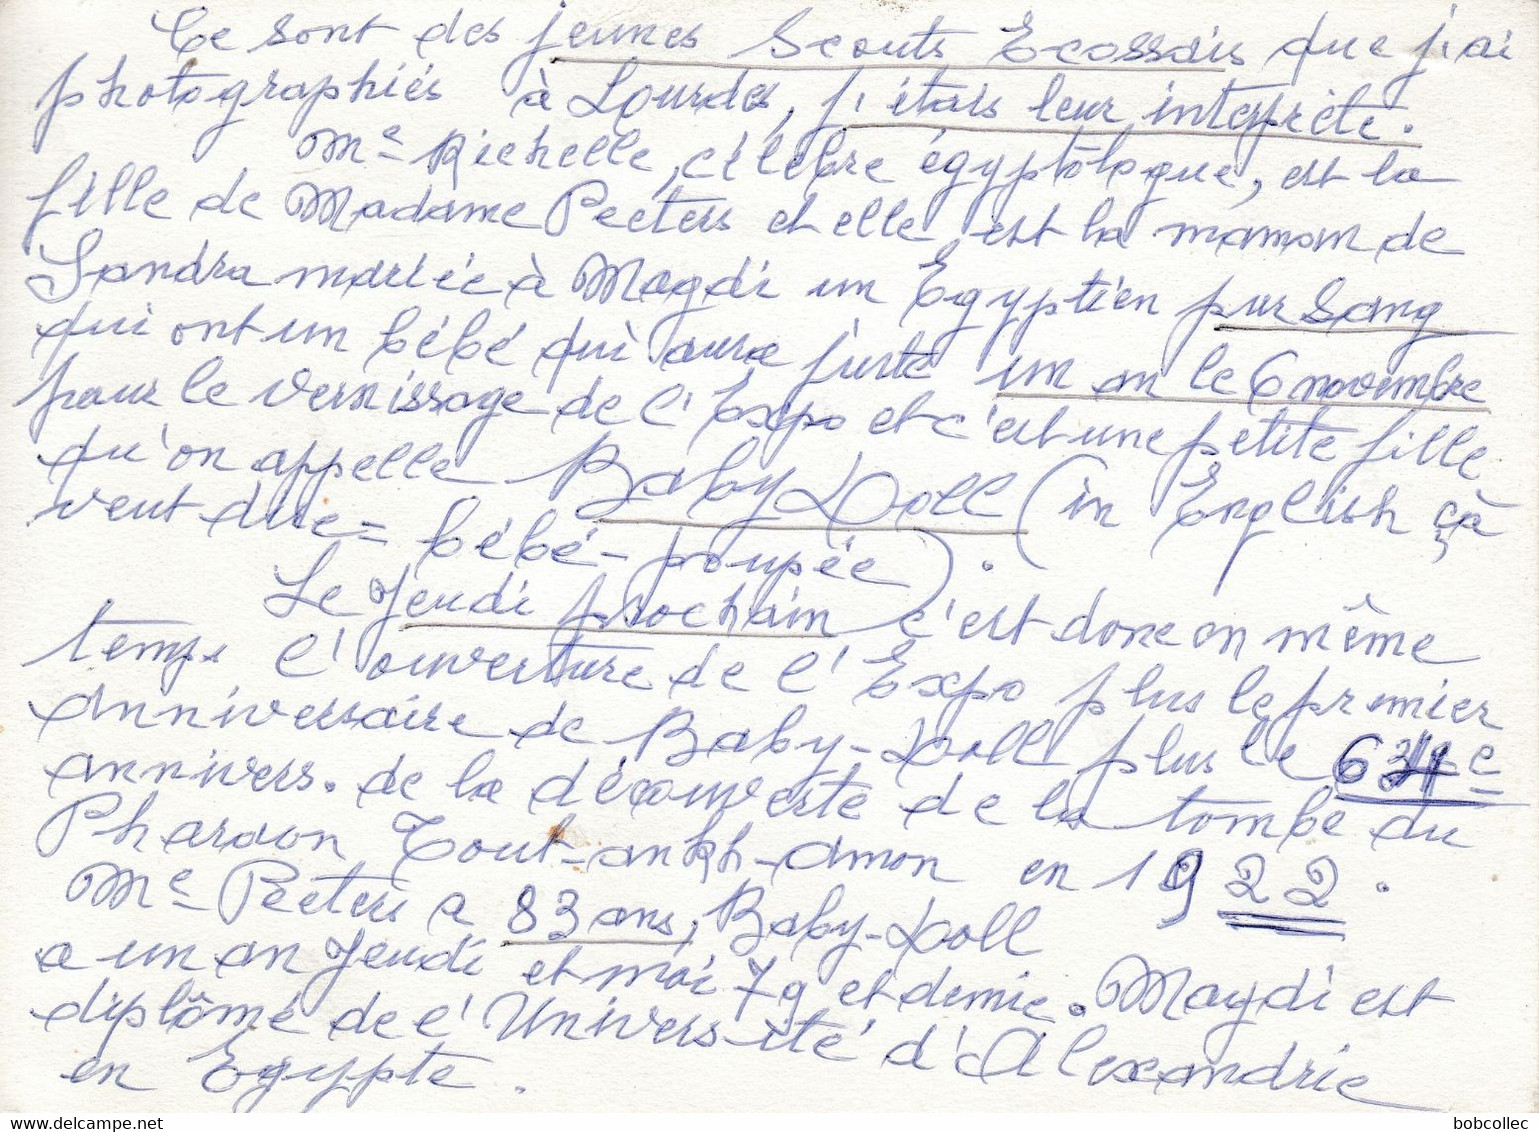 Ce sont des jeunes Scouts Ecossais que j'ai
photographiés à Lourdes, j'étais leur interprète.
Me Richelle, célèbre égyptologue, est la
fille de Madame Peeters et elle est la maman de
Sandra mariée à Magdi un Egyptien pur Sang
qui ont un bébé qui aura juste un an le 6 novembre
pour le vernissage de l'Expo et c'est une petite fille
qu'on appelle Baby Doll (in English çà
veut dire = bébé-poupée).
Le Jeudi prochain c'est donc en même
temps l'ouverture de l'Expo plus le premier
anniversaire de Baby-Doll plus le 6 e
annivers. de la découverte de la tombe du
Pharaon Tout-ankh-amon en 1922.
Me Peeters a 83 ans, Baby-Doll
a un an Jeudi et moi 79 et demie. Magdi est
diplômé de l'Université d'Alexandrie
en Egypte.
bobcollec